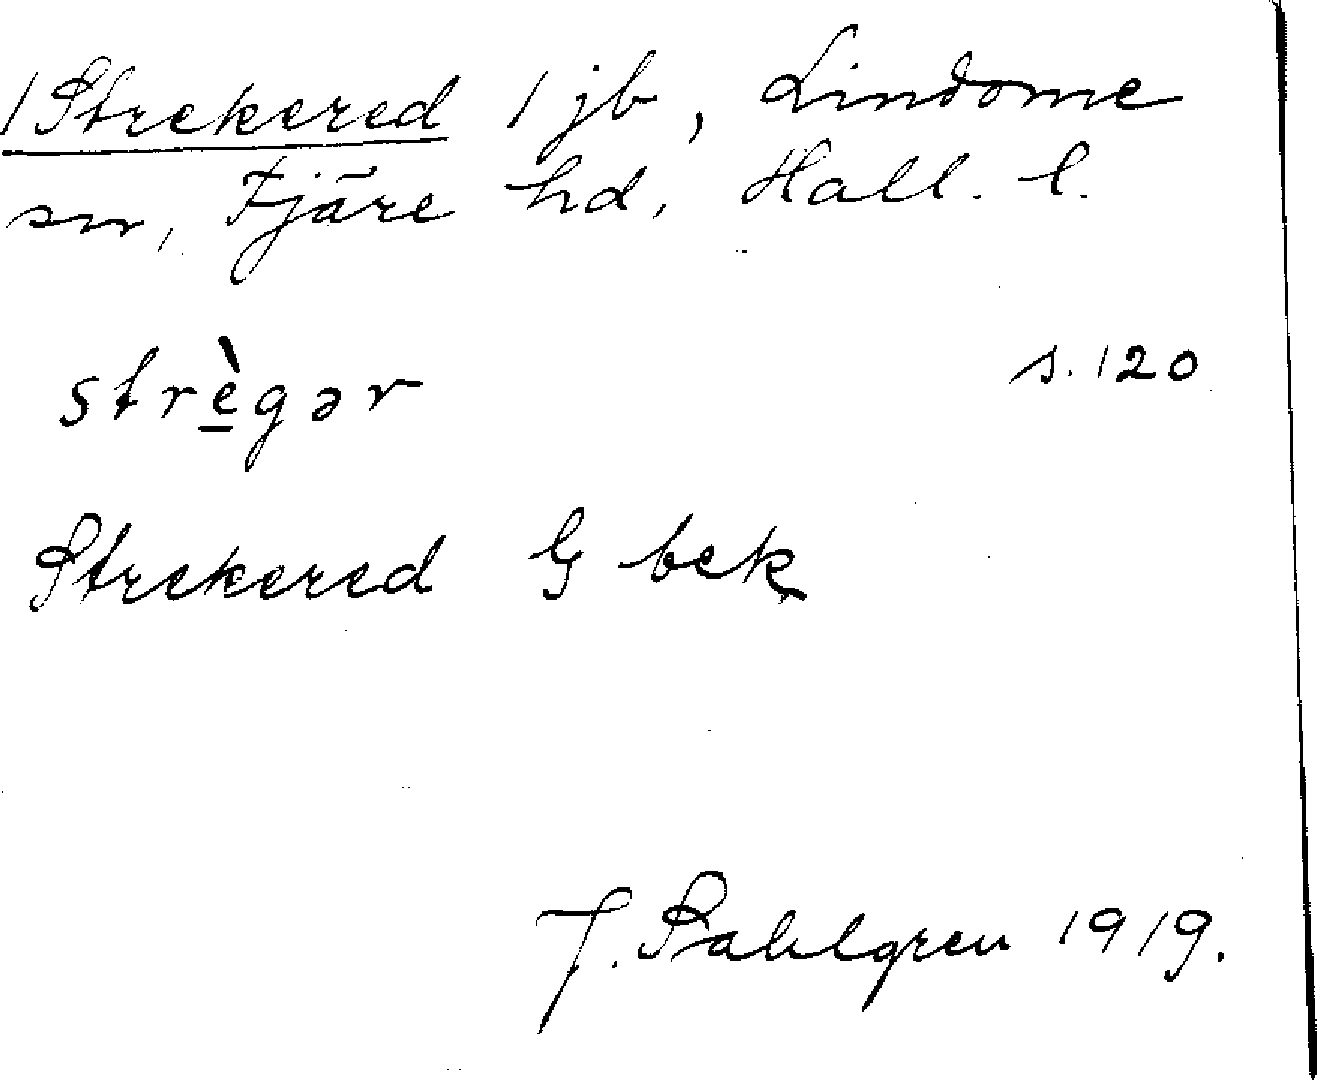 /Strekered 1 jb, Lindome
sn, Fjäre hd, Hall. l.
strè̱gər s. 120
Strekered G bek
J. Sahlgren 1919.